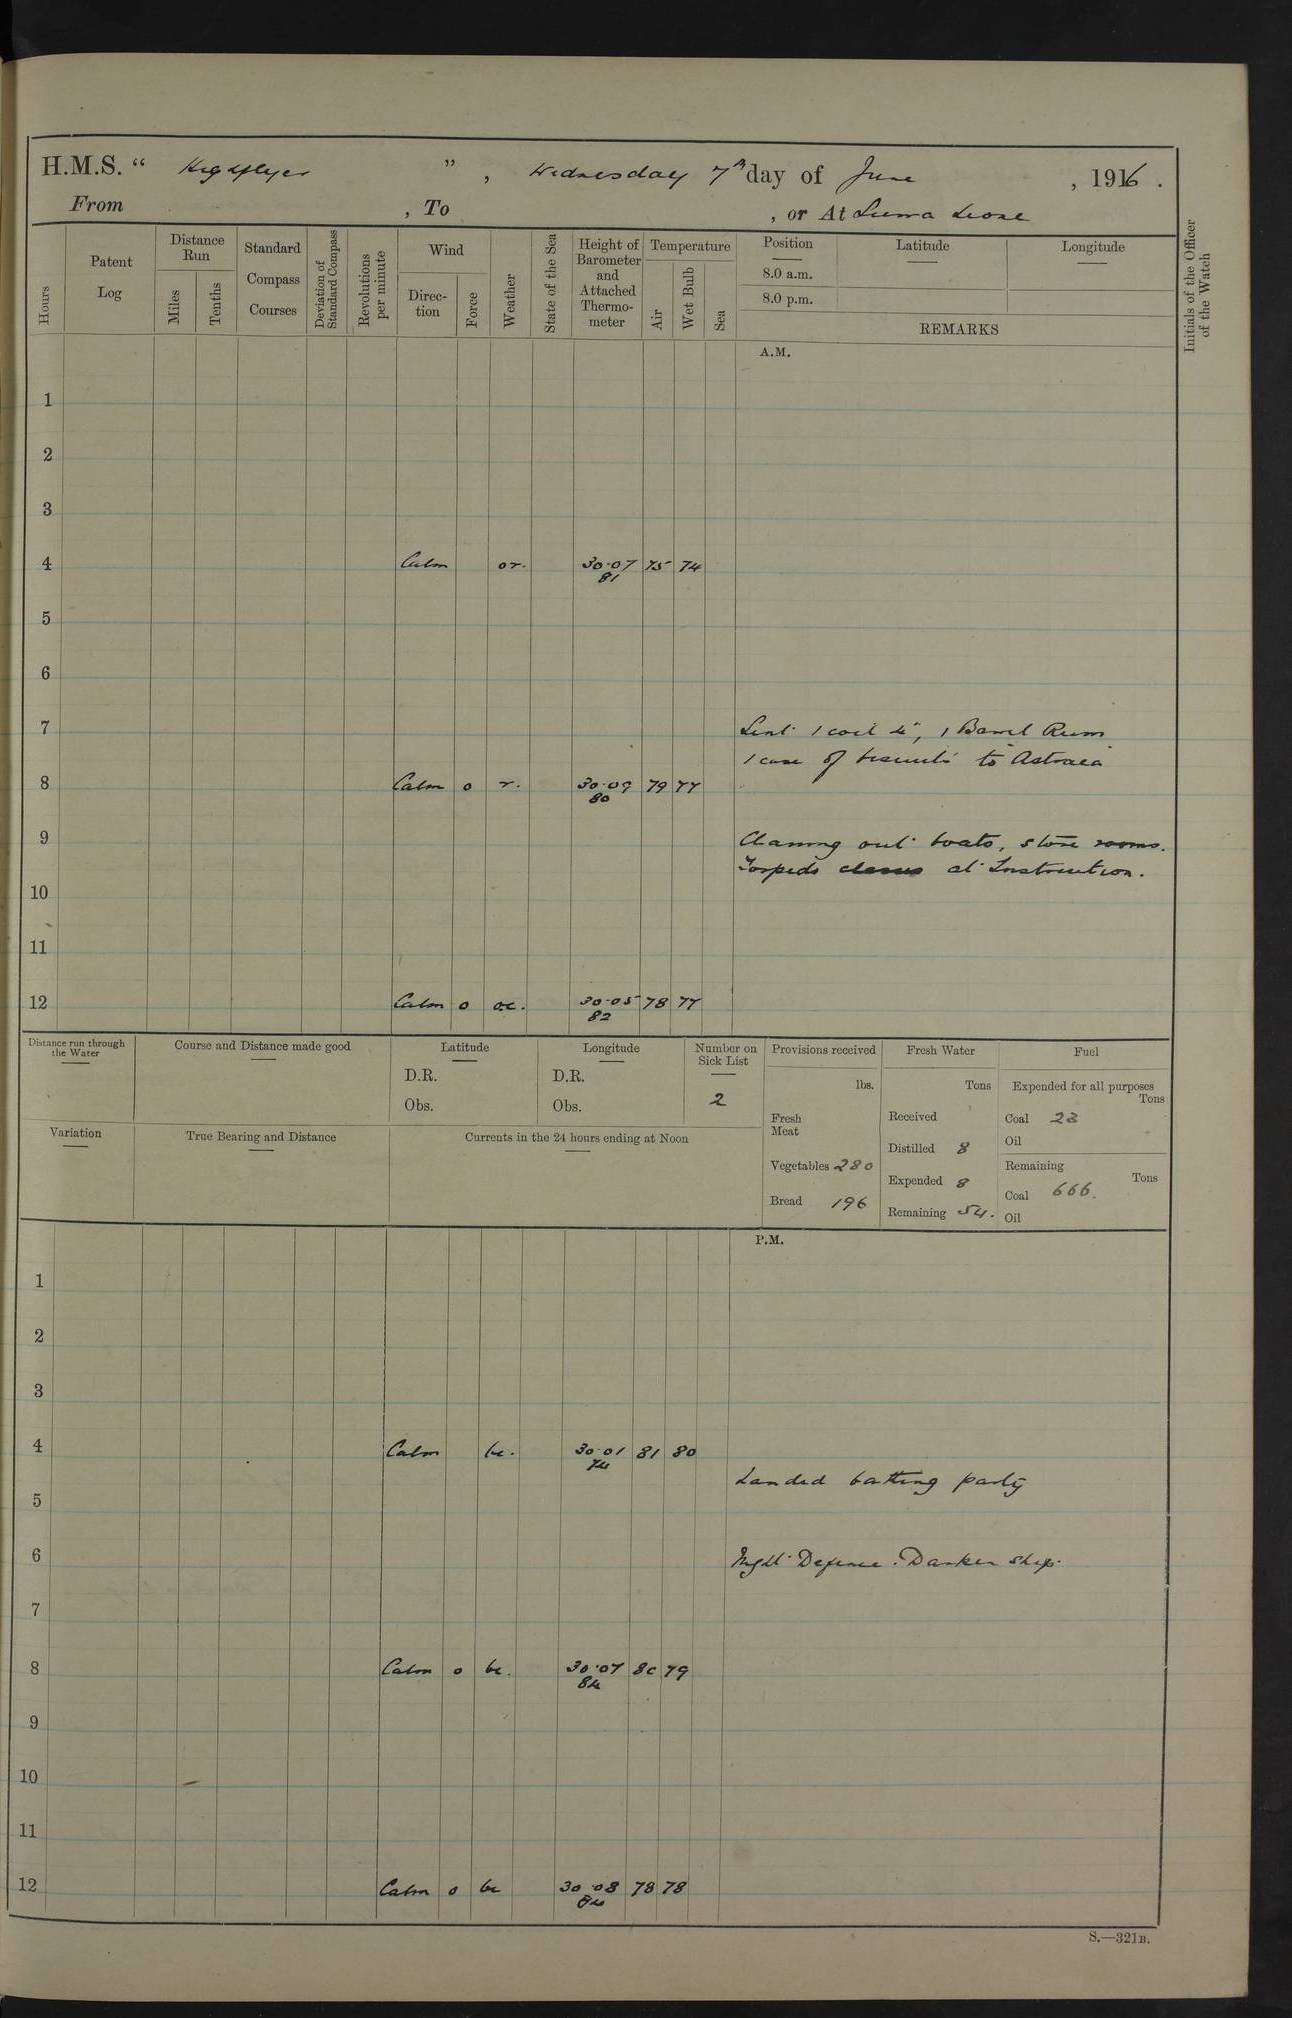 H.M.S. " Highflyer ", Wednesday 7th day of June, 1916.
From , To , or At Sierra Leone
Hours
Patent Log
Distance Run
Miles
Tenths
Standard Compass Courses
Deviation of Standard Compass
Revolutions per minute
Wind
Direc-tion
Force
Weather
State of the Sea
Height of Barometer and Attached Thermo-meter
Temperature
Air
Wet Bulb
Sea
Position
8.0 a.m.
8.0 p.m.
Latitude
Longitude
REMARKS
Initials of the Officer of the Watch
A.M.
1
2
3
4 Calm or. 30.07 75 74
81
5
6
7 Sent 1 coil 4", 1 Barrel Rum
1 case of biscuits to Astraea
8 Calm 0 r. 30.09 79 77
80
9 Cleaning out boats, store rooms.
Torpedo classes at Instruction.
10
11
12 Calm 0 oc. 30.05 78 77
82
Distance run through the Water
Course and Distance made good
Latitude
D.R.
Obs.
Longitude
D.R.
Obs.
Number on Sick List
2
Provisions received
lbs.
Fresh Meat
Vegetables 280
Bread 196
Fresh Water
Tons
Received
Distilled 8
Expended 8
Remaining 54.
Fuel
Expended for all purposes
Tons
Coal 23
Oil
Remaining
Tons
Coal 666.
Oil
Variation
True Bearing and Distance
Currents in the 24 hours ending at Noon
P.M.
1
2
3
4 Calm bc. 30.01 81 80
Landed bathing party
5
6 Night Defence. Darken ship.
7
8 Calm 0 bc. 30.07 80 79
84
9
10
11
12 Calm 0 bc 30.08 78 78
84
S.—321B.